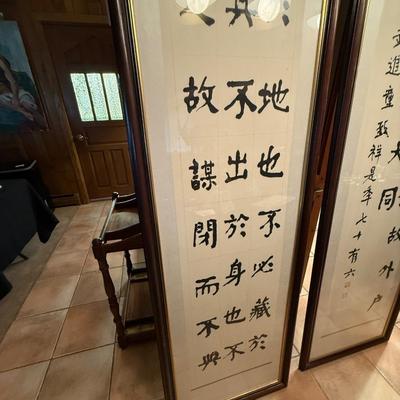 於地也不必藏於
其不出於身也不
故謀閉而不興
大同故外户
進童致祥是季七十有六